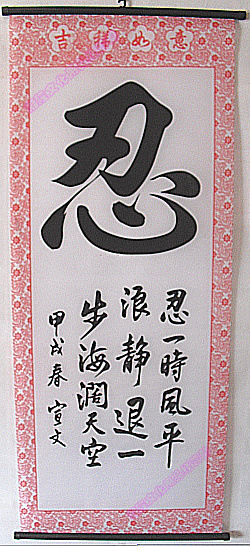 吉祥如意
忍
忍一時風平
浪靜退一
步海濶天空
甲戌春 宣文